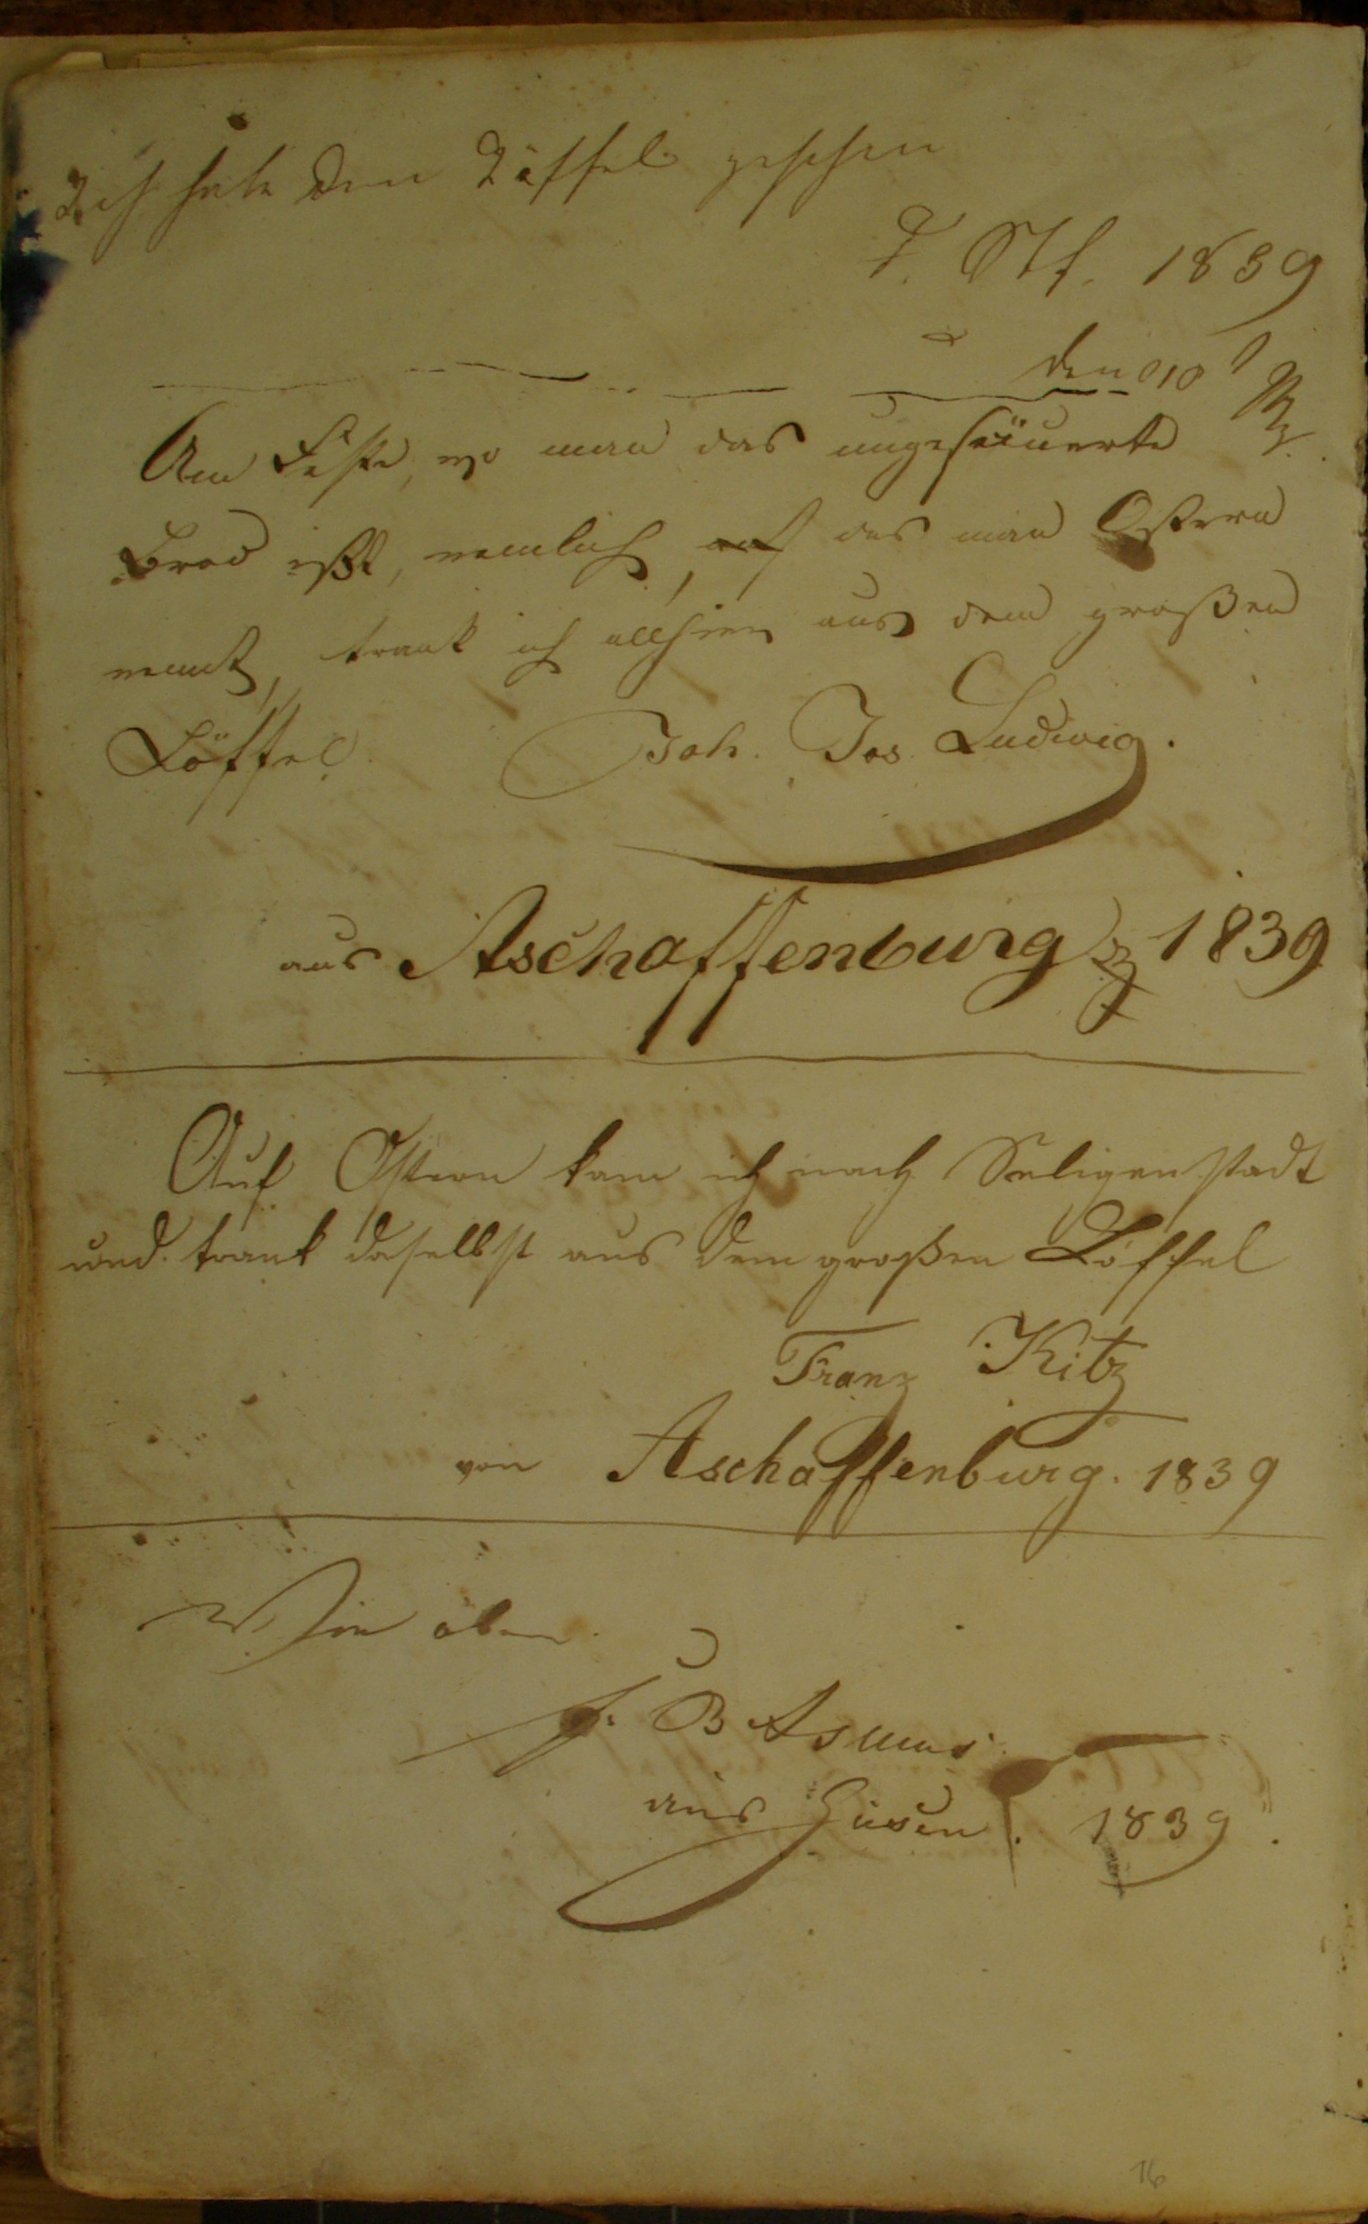 Ich habe den Löffel gesehen
1839
den 10
Am Feste, wo man das ungesäuerte
Brod ißt, nemlich auf das man Ostern
nennt, trank ich allhier aus dem großen
Löffel. Joh. Jos. Ludwig.
aus Aschaffenburg 1839
Auf Ostern kam ich nach Seligenstadt
und trank daselbst aus dem großen Löffel
Franz Kitz
von Aschaffenburg. 1839
Wie oben.
J. B Asmus
aus 1839.
16